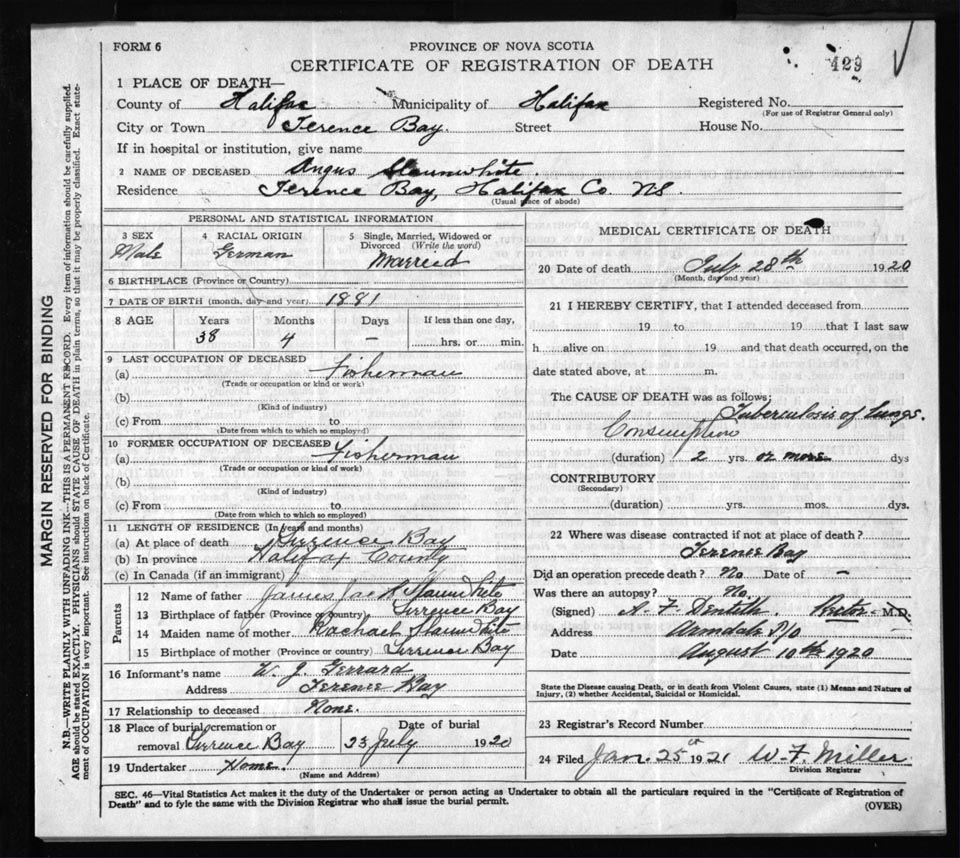 FORM 6
PROVINCE OF NOVA SCOTIA
CERTIFICATE OF REGISTRATION OF DEATH
429
1 PLACE OF DEATH—
County of Halifax Municipality of Halifax Registered No.
(For use of Registrar General only)
City or Town Terence Bay. Street House No.
If in hospital or institution, give name
2 NAME OF DECEASED Angus Slaunwhite.
Residence Terence Bay, Halifax Co. NS.
(Usual place of abode)
PERSONAL AND STATISTICAL INFORMATION
3 SEX 4 RACIAL ORIGIN 5 Single, Married, Widowed or
Divorced (Write the word)
Male German Married
6 BIRTHPLACE (Province or Country)
7 DATE OF BIRTH (month, day and year) 1881
8 AGE Years Months Days If less than one day,
38 4 – hrs. or min.
9 LAST OCCUPATION OF DECEASED
(a) Fisherman
(Trade or occupation or kind or work)
(b)
(Kind of industry)
(c) From to
(Date from which to which so employed)
10 FORMER OCCUPATION OF DECEASED
(a) Fisherman
(Trade or occupation or kind or work)
(b)
(Kind of industry)
(c) From to
(Date from which to which so employed)
11 LENGTH OF RESIDENCE (In years and months)
(a) At place of death Terrence Bay
(b) In province Halifax County
(c) In Canada (if an immigrant)
Parents
12 Name of father James Jack Slaunwhite
13 Birthplace of father (Province or country) Terrence Bay
14 Maiden name of mother Rachael Slaunwhite
15 Birthplace of mother (Province or country) Terrence Bay
16 Informant's name W. J. Gerrard
Address Terence Bay
17 Relationship to deceased None.
18 Place of burial, cremation or Date of burial
removal Terrence Bay 23 July 1920
19 Undertaker None.
(Name and Address)
MEDICAL CERTIFICATE OF DEATH
20 Date of death July 28th 1920
(Month, day and year)
21 I HEREBY CERTIFY, that I attended deceased from
19 to 19 that I last saw
h alive on 19 and that death occurred, on the
date stated above, at m.
The CAUSE OF DEATH was as follows;
Tuberculosis of lungs.
Consumption
(duration) 2 yrs. or more dys
CONTRIBUTORY
(Secondary)
(duration) yrs. mos. dys.
22 Where was disease contracted if not at place of death?
Terence Bay
Did an operation precede death? No Date of –
Was there an autopsy? No.
(Signed) A. F. Dentith. Rector M.D.
Address Armdale P/O
Date August 10th 1920
State the Disease causing Death, or in death from Violent Causes, state (1) Means and Nature of
Injury, (2) whether Accidental, Suicidal or Homicidal.
23 Registrar's Record Number
24 Filed Jan. 25th 1921 W. F. Miller
Division Registrar
SEC. 46—Vital Statistics Act makes it the duty of the Undertaker or person acting as Undertaker to obtain all the particulars required in the "Certificate of Registration of
Death" and to fyle the same with the Division Registrar who shall issue the burial permit.
(OVER)
MARGIN RESERVED FOR BINDING
N.B.—WRITE PLAINLY WITH UNFADING INK—THIS IS A PERMANENT RECORD. Every item of information should be carefully supplied.
AGE should be stated EXACTLY. PHYSICIANS should STATE CAUSE OF DEATH in plain terms, so that it may be properly classified. Exact state-
ment of OCCUPATION is very important. See instructions on back of Certificate.